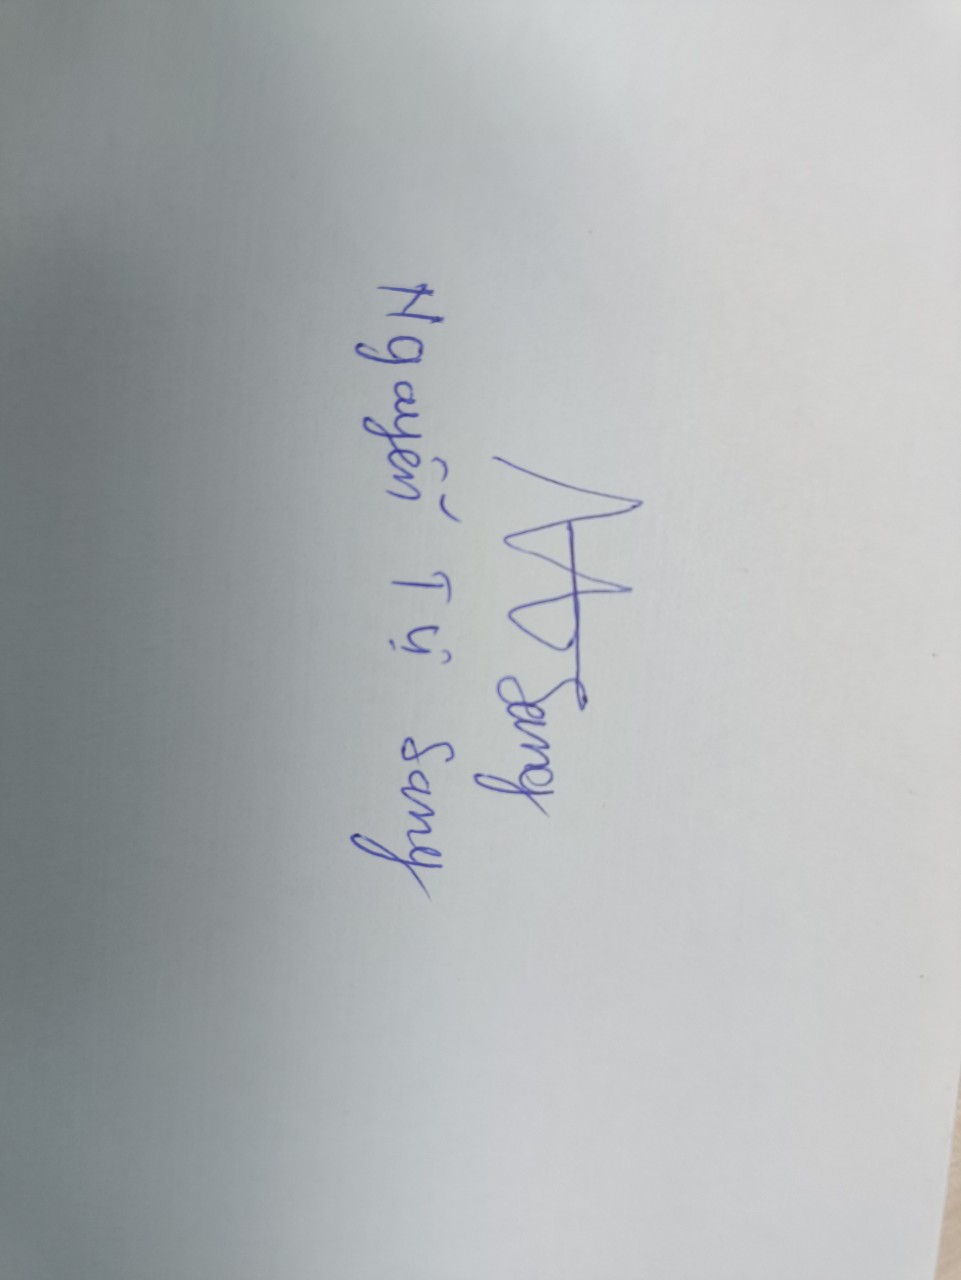 Sang
Nguyễn Tỵ Sang